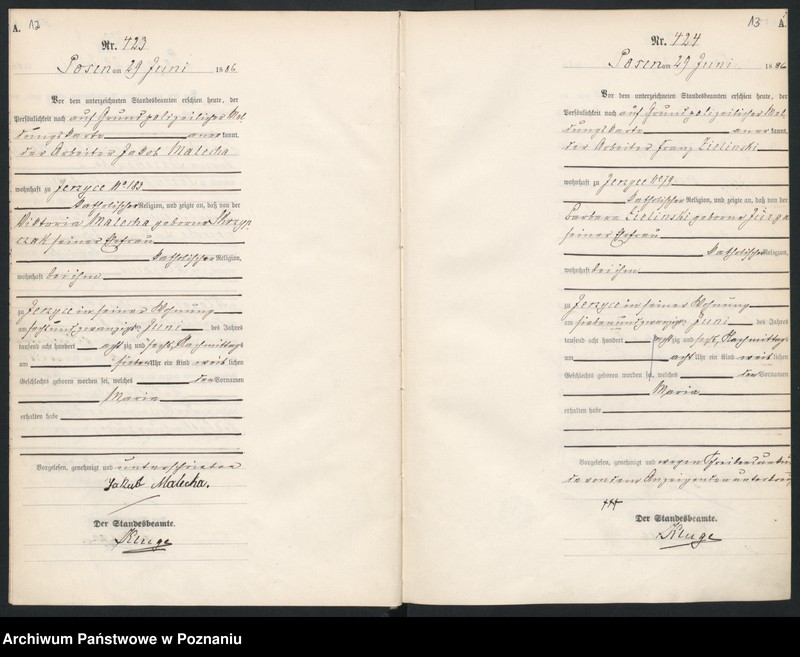 A. 12
Nr. 423
Posen am 29 Juni 1886
Vor dem unterzeichneten Standesbeamten erschien heute, der
Persönlichkeit nach auf Grund polizeilicher Mel
dungskarte anerkannt,
der Arbeiter Jakob Malecha
wohnhaft zu Jerzyce No 183
katholischer Religion, und zeigte an, daß von der
Viktoria Malecha geborne Skrzyp
czak seiner Ehefrau
katholischer Religion,
wohnhaft bei ihm
zu Jerzyce in seiner Wohnung
am sechs und zwanzigs Juni des Jahres
tausend acht hundert achtzig und sechs, Nachmittags
um sieben Uhr ein Kind weiblichen
Geschlechts geboren worden sei, welches den Vornamen
Maria
erhalten habe
Vorgelesen, genehmigt und unterschrieben
Jakub Malecha.
Der Standesbeamte.
Kluge
13 A.
Nr. 424
Posen am 29 Juni 1886
Vor dem unterzeichneten Standesbeamten erschien heute, der
Persönlichkeit nach auf Grund polizeilicher Mel
dungskarte anerkannt,
der Arbeiter Franz Zielinski
wohnhaft zu Jerzyce No 79
katholischer Religion, und zeigte an, daß von der
Barbara Zielinski geborne
seiner Ehefrau
katholischer Religion,
wohnhaft bei ihm
zu Jerzyce in seiner Wohnung
am sieben und zwanzigs Juni des Jahres
tausend acht hundert achtzig und sechs, Nachmittags
um acht Uhr ein Kind weiblichen
Geschlechts geboren worden sei, welches den Vornamen
Maria
erhalten habe
Vorgelesen, genehmigt und wegen Schreibensunkun
de von dem Anzeigenden unterkreuz
+++
Der Standesbeamte.
Kluge
Archiwum Państwowe w Poznaniu